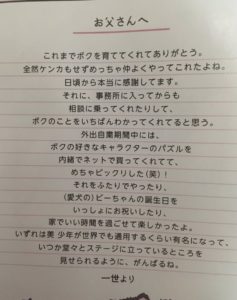 お父さんへ
これまでボクを育ててくれてありがとう。
全然ケンカもせずめっちゃ仲よくやってこれたよね。
日頃から本当に感謝してます。
それに、事務所に入ってからも
相談に乗ってくれたりして、
ボクのことをいちばんわかってくれてると思う。
外出自粛期間中には、
ボクの好きなキャラクターのパズルを
内緒でネットで買ってくれてて、
めちゃビックリした(笑)!
それをふたりでやったり、
(愛犬の)ビーちゃんの誕生日を
いっしょにお祝いしたり、
家でいい時間を過ごせて楽しかったよ。
いずれは美 少年が世界でも通用するくらい有名になって、
いつか堂々とステージに立っているところを
見せられるように、がんばるね。
一世より